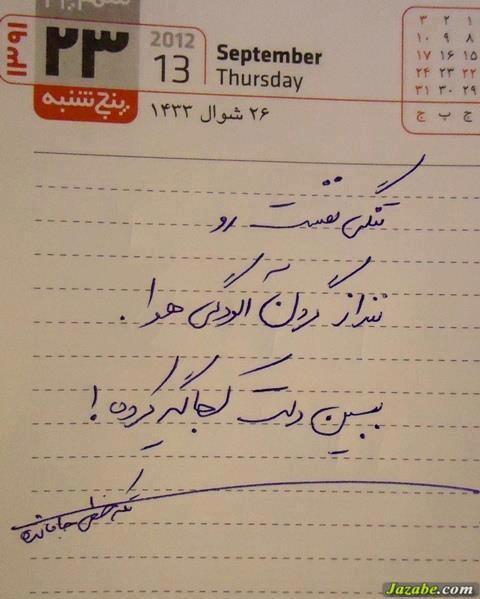 ۱۳۹۱
۲۳
پنج‌شنبه
2012
13
September
Thursday
۲۶ شوال ۱۴۳۳
۳ ۲ ۱
۱۰ ۹ ۸
۱۷ ۱۶ ۱۵
۲۴ ۲۳ ۲۲
۳۱ ۳۰ ۲۹
ج پ چ
تنگی نفست رو
ننداز گردن آلودگی هوا.
ببین دلت کجا گیر کرده!
Jazabe.com